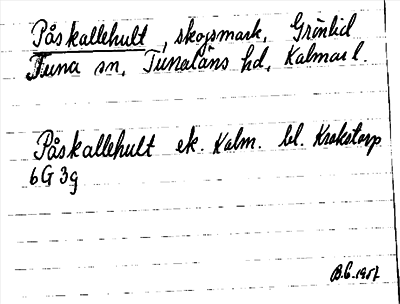 Påskallehult, skogsmark, Grönlid
Tuna sn, Tunaläns hd, Kalmar l.
Påskallehult ek. Kalm. bl. Krokstorp
6G 3g
B.C. 1957